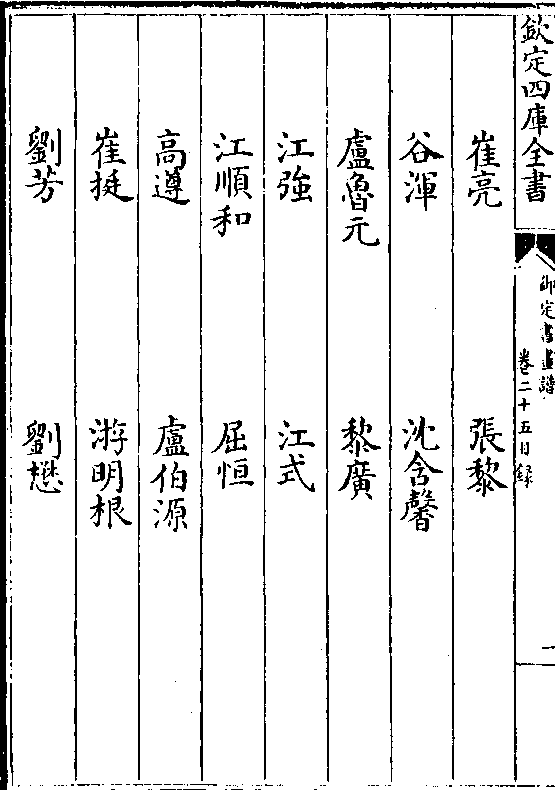 欽定四庫全書
御定書畫譜
卷二十五目録
一
崔亮 張黎
谷渾 沈含馨
盧魯元 黎廣
江強 江式
江順和 屈恒
高遵 盧伯源
崔挺 游明根
劉芳 劉懋